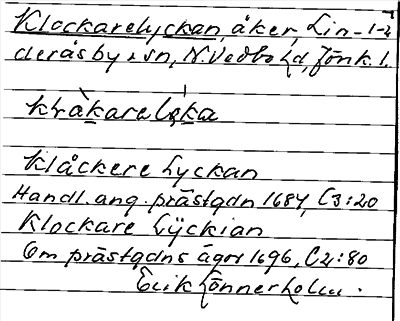 Klockarelyckan, åker, Lin- 1-2
deråsby o sn, N. Vedbo hd, Jönk. l.
Klåckere Lyckan
Handl. ang. prästgdn 1684, C3:20
Klockare Lÿckian
Om prästgdns ägor 1696, C2:80
Erik Lönnerholm.